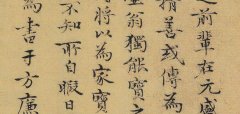 之前輩在元盛
精善或傳為
壺翁獨能寶之
將以為家寶
不知所自暇日
為書于方廉